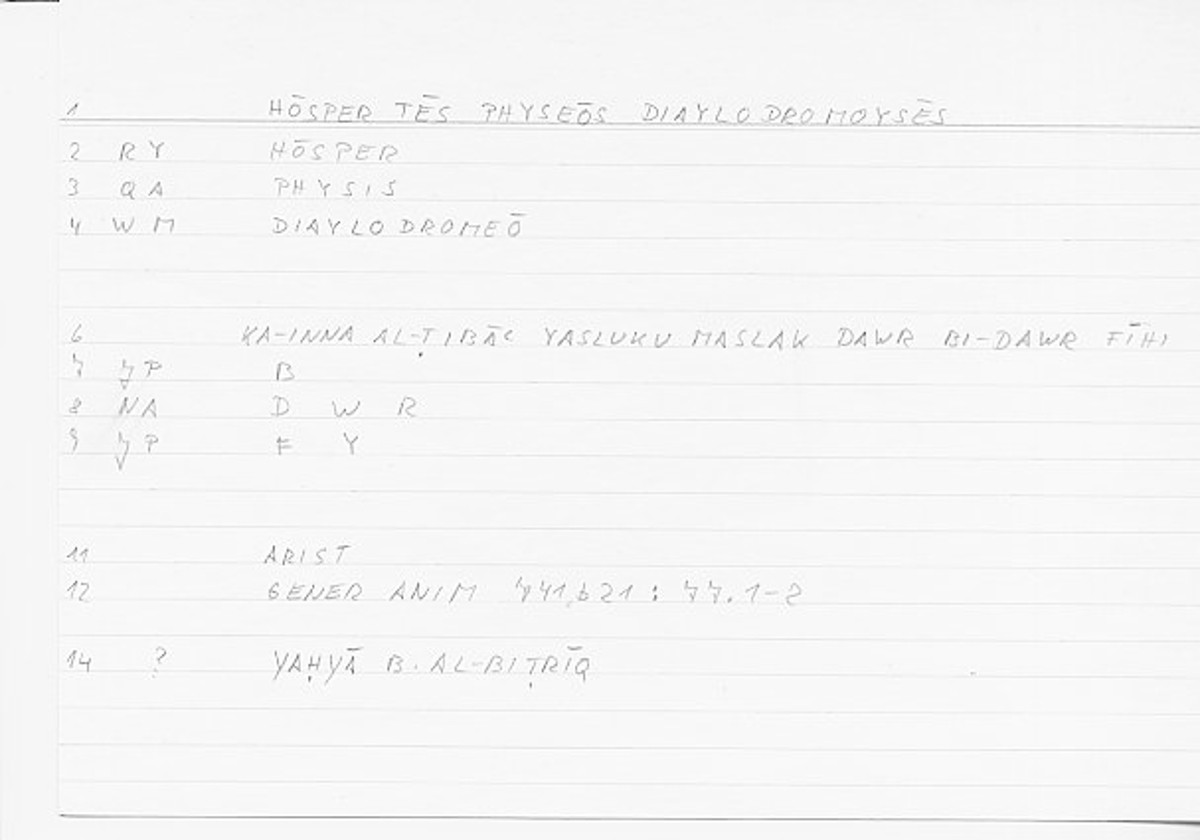 1 HŌSPER TĒS PHYSEŌS DIAYLODROMOYSĒS
2 RY HŌSPER
3 QA PHYSIS
4 WM DIAYLODROMEŌ
6 KA-INNA AL-ṬIBĀC YASLUKU MASLAK DAWR BI-DAWR FĪHI
7 P B
8 NA D W R
9 P F Y
11 ARIST
12 GENER ANIM 741,b21 : 77.1-2
14 ? YAḤYĀ B. AL-BIṬRĪQ